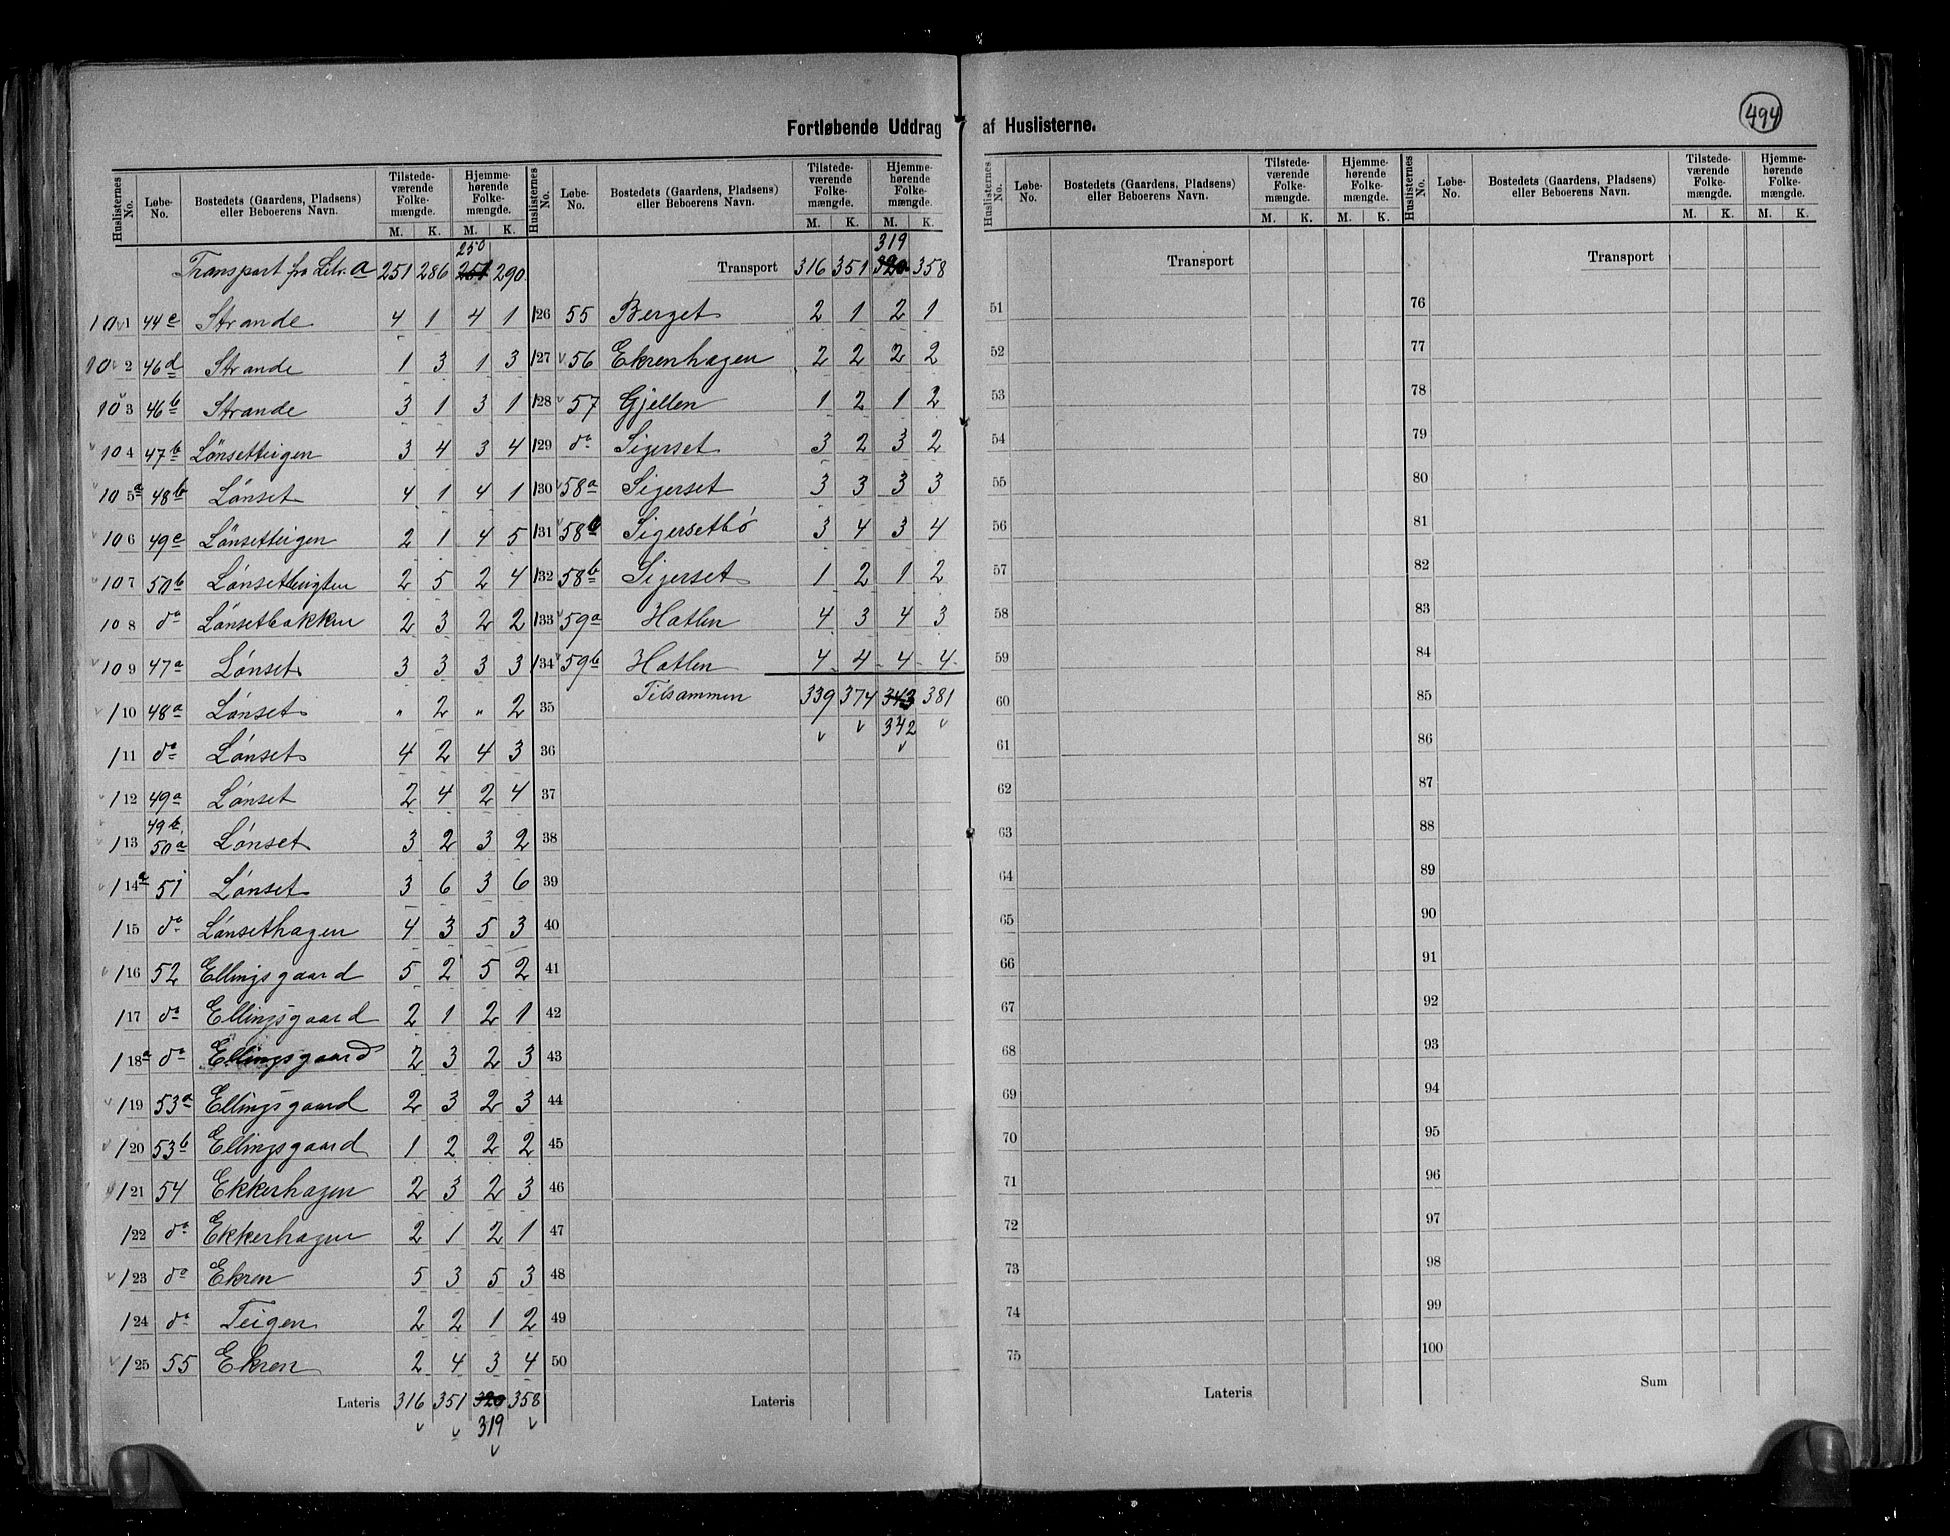 494
Fortløbende Uddrag af Huslisterne.
Huslisternes No. Løbe-No. Bostedets (Gaardens, Pladsens) eller Beboerens Navn. Tilstede-værende Folke-mængde. M. K. Hjemme-hørende Folke-mængde. M. K.
250
Transport fra Litr. a 251 286 251 290
101 44e Strande 4 1 4 1
102 46d Strande 1 3 1 3
103 46b Strande 3 1 3 1
104 47b Lönsetteigen 3 4 3 4
105a 48b Lönset 4 1 4 1
106 49c Lönsetteigen 2 1 4 5
107 50b 2 5 2 4
108 do Lönsetbakken 2 3 2 2
109 47a Lönset 3 3 3 3
110 48a Lönset " 2 " 2
111 do Lönset 4 2 4 3
112 49a Lönset 2 4 2 4
113 49b 50a Lönset 3 2 3 2
114a 51 Lönset 3 6 3 6
115 do Lönsethagen 4 3 5 3
116 52 Ellingsgaard 5 2 5 2
117 do Ellingsgaard 2 1 2 1
118a do Ellingsgaard 2 3 2 3
119 53a Ellingsgaard 2 3 2 3
120 53b Ellingsgaard 1 2 2 2
121 54 Ekkerhagen 2 3 2 3
122 do Ekkerhagen 2 1 2 1
123 do Ekren 5 3 5 3
124 do Teigen 2 2 1 2
125 55 Ekren 2 4 3 4
Lateris 316 351 320 358
319
Huslisternes No. Løbe-No. Bostedets (Gaardens, Pladsens) eller Beboerens Navn. Tilstede-værende Folke-mængde. M. K. Hjemme-hørende Folke-mængde. M. K.
319
Transport 316 351 320 358
126 55 Berget 2 1 2 1
127 56 Ekrenhagen 2 2 2 2
128 57 Gjellen 1 2 1 2
129 do Sigerset 3 2 3 2
130 58a Sigerset 3 3 3 3
131 58b Sigersetbö 3 4 3 4
132 58b Sigerset 1 2 1 2
133 59a Hatlen 4 3 4 3
134 59b Hatlen 4 4 4 4
35 Tilsammen 339 374 343 381
342
36
37
38
39
40
41
42
43
44
45
46
47
48
49
50
Lateris
Huslisternes No. Løbe-No. Bostedets (Gaardens, Pladsens) eller Beboerens Navn. Tilstede-værende Folke-mængde. M. K. Hjemme-hørende Folke-mængde. M. K.
Transport
51
52
53
54
55
56
57
58
59
60
61
62
63
64
65
66
67
68
69
70
71
72
73
74
75
Lateris
Huslisternes No. Løbe-No. Bostedets (Gaardens, Pladsens) eller Beboerens Navn. Tilstede-værende Folke-mængde. M. K. Hjemme-hørende Folke-mængde. M. K.
Transport
76
77
78
79
80
81
82
83
84
85
86
87
88
89
90
91
92
93
94
95
96
97
98
99
100
Sum